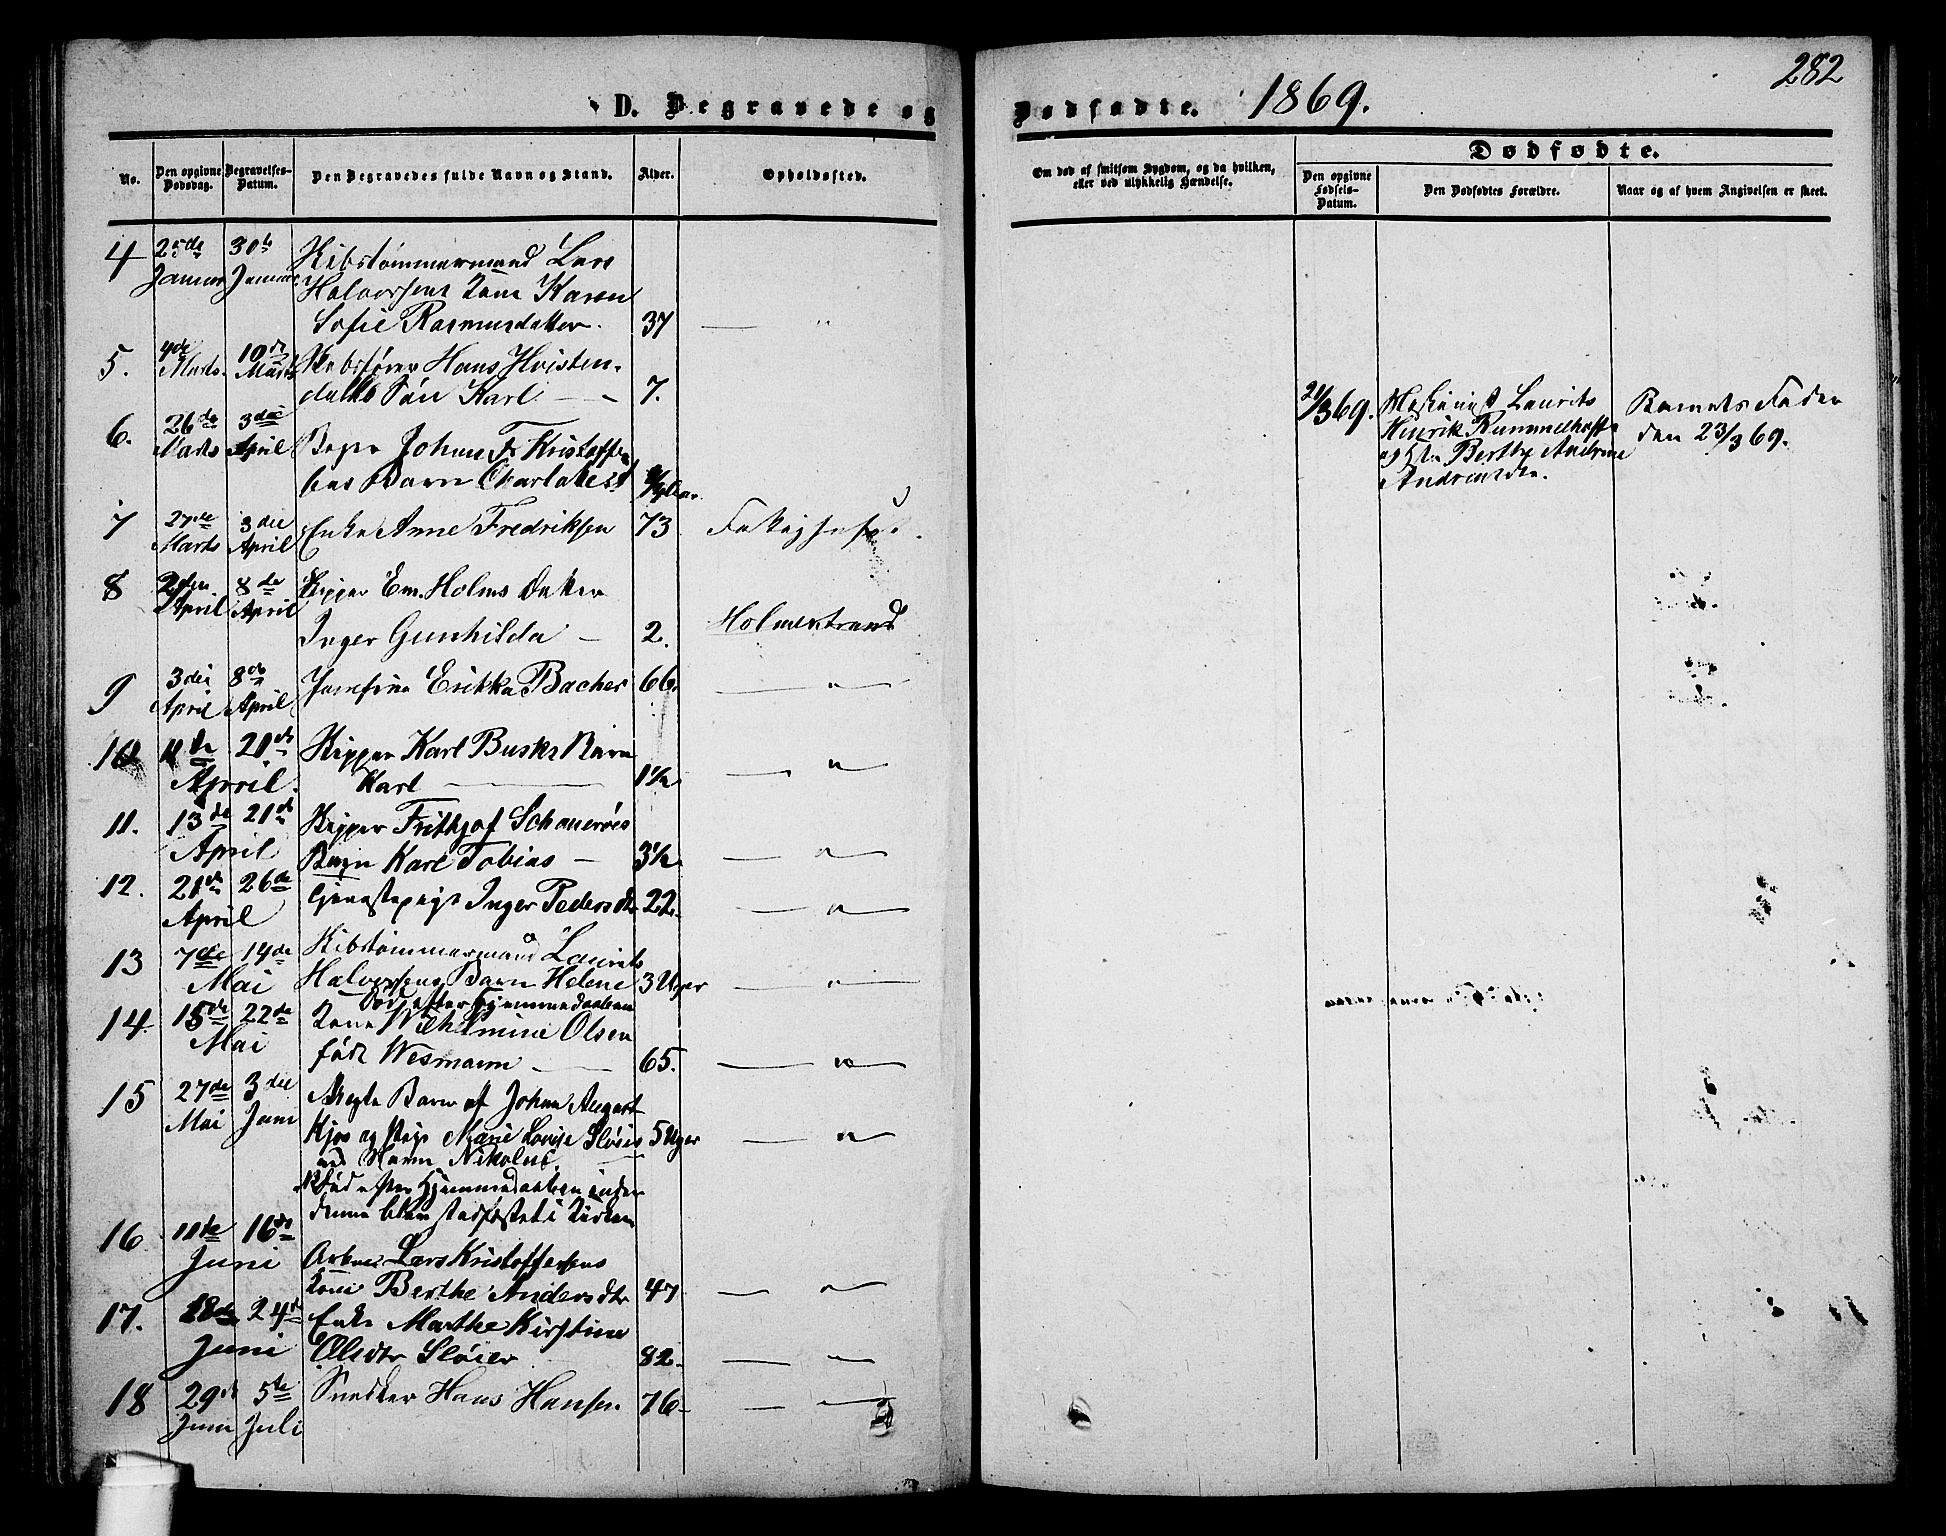 282
D. Begravede og Dødfødte. 1869.
No.
Den opgivne Dødsdag.
Begravelses-Datum.
Den Begravedes fulde Navn og Stand.
Alder.
Opholdssted.
Om død af smitsom Sygdom, og da hvilken, eller ved ulykkelig Hændelse.
Dødfødte.
Den opgivne Fødsels-Datum.
Den Dødfødtes Forældre.
Naar og af hvem Angivelsen er skeet.
4 25de 30te Skibstømmermand Lars
Januar Januar Halvorsens Kone Karen
Sofie Rasmusdatter. 37 — "
5. 4de 10de Skibsfører Hans Hvisten-
Marts. Marts dalhs Søn Karl — 7.
6. 26de 3die
Marts April Johan Fr Kristoffer
sens Barn
7 27de 3die Enke Anne Fredriksen 73 Fattighuset.
Marts April
8 2den 8de Skipper Em. Holms Datter
April April
Inger Gunhilda — 2. Holmestrand
9 3die 8de Josefine Erikka Bacher 66. — " —
April April
10 11te 20de Skipper Karl Busks Barn
April. Karl — 1½ — " —
11. 13de 21de Skipper Frithjof Schanerøes
April Barn Karl Tobias — 3½ — " —
12. 21de 26de Tjenestepige Inger Pedersdtr 22. — " —
April
13 7de 14de Skibstømmermand Laurits
Mai Halvorsens Barn Helene 3 Uger — " —
Død efter Hjemmedaaben
14. 15de 22de Kone Wilhelmine Olsen
Mai født Wesmann — 65. — " —
15 27de 3die Uægte Barn af Johan August
Mai Juni Kjøs og Pige Marie Lovise Sløier 5 Uger — " —
ved Navn Nikolus.
Død efter Hjemmedaaben inden
denne blev stadfæstet i Kirken
16 11te 16de
Juni Arbm. Lars Kristoffersens
Kone Berthe Andersdtr 47 — " —
17. 18de 24de Enke Marthe Kirstine
Juni Olsdtr Sløier 82. — " —
18 29de 5te Snedker Hans Hansen. 76 — " —
Juni Juli
21/3 69. Maskinist Laurits
Henrik Rummelhoff
og Berthe Andrine
Andreasen.
Barnets Fader
den 23/3 69.